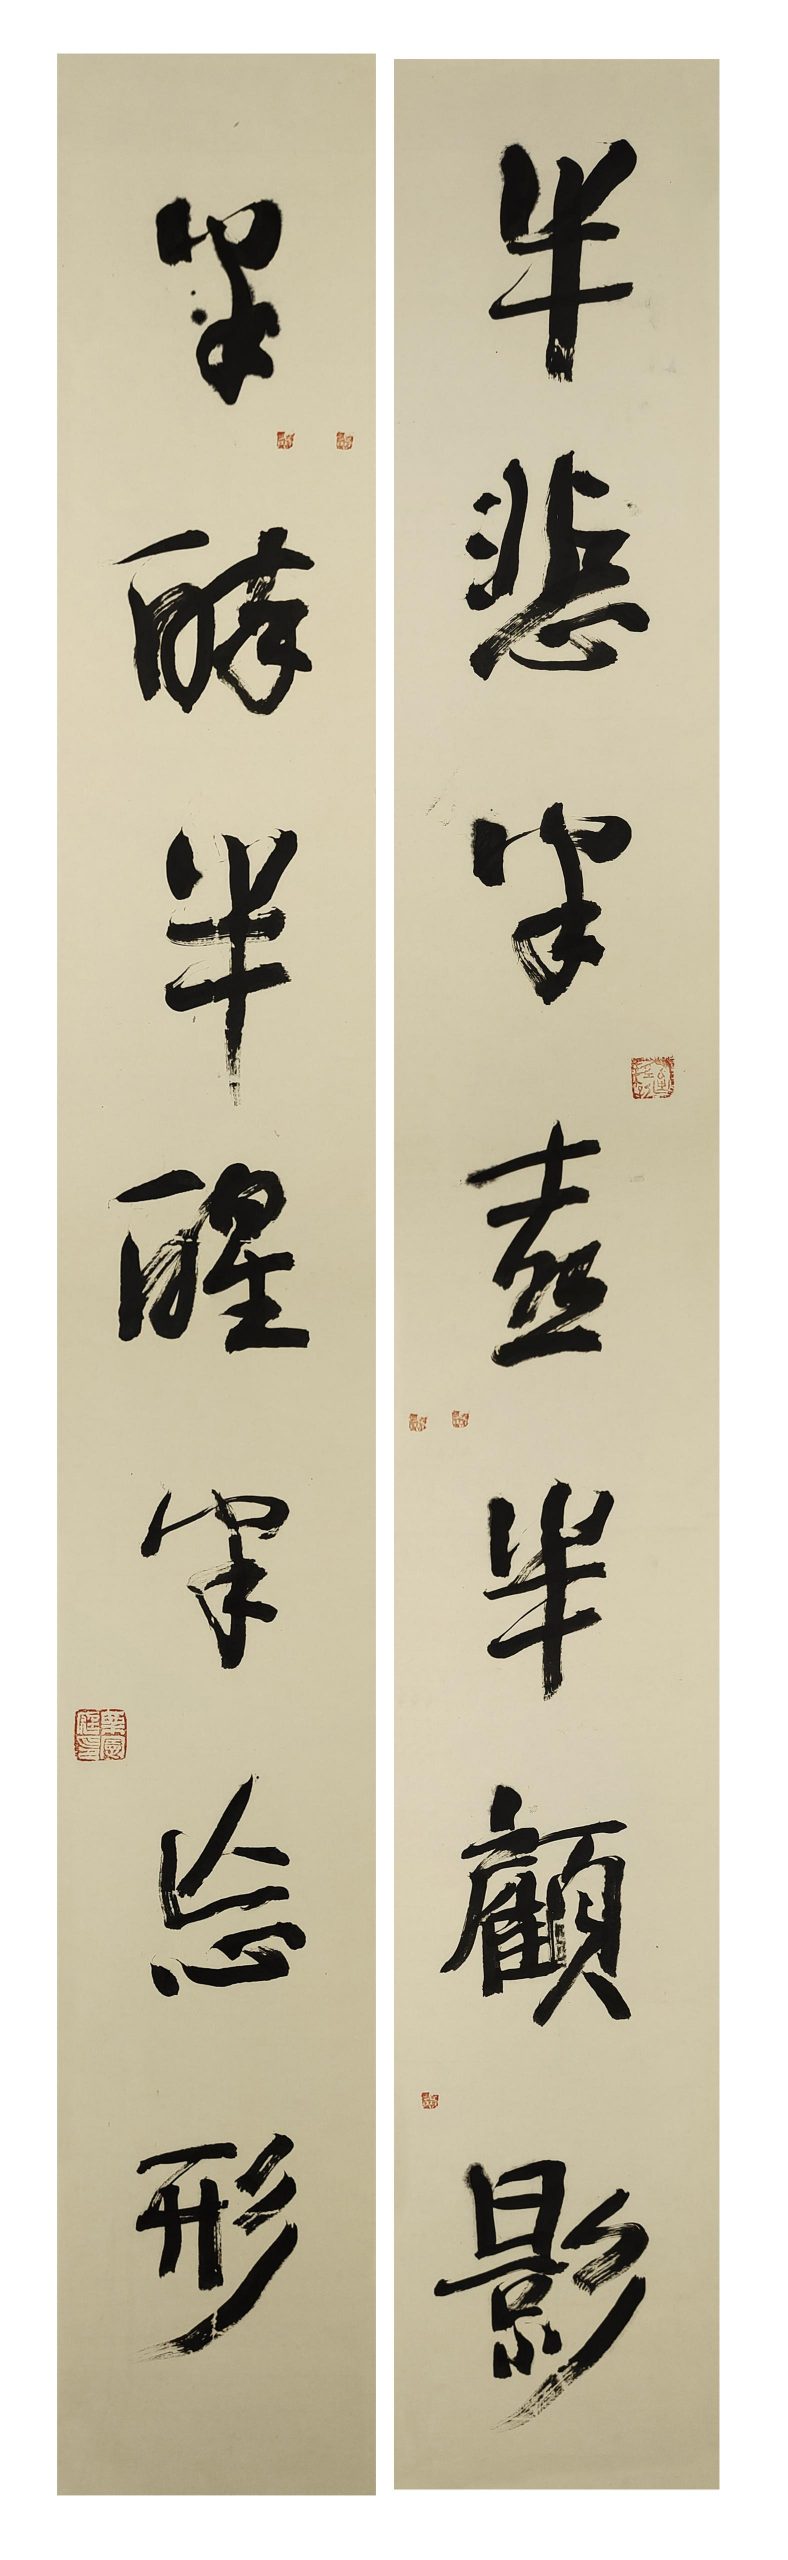 半悲半喜半顧影
半醉半醒半忘形